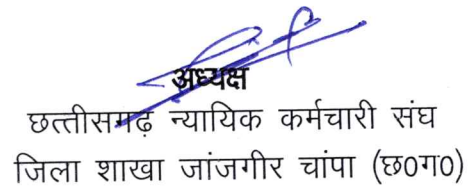 अध्यक्ष
छत्तीसगढ़ न्यायिक कर्मचारी संघ
जिला शाखा जांजगीर चांपा (छ0ग0)